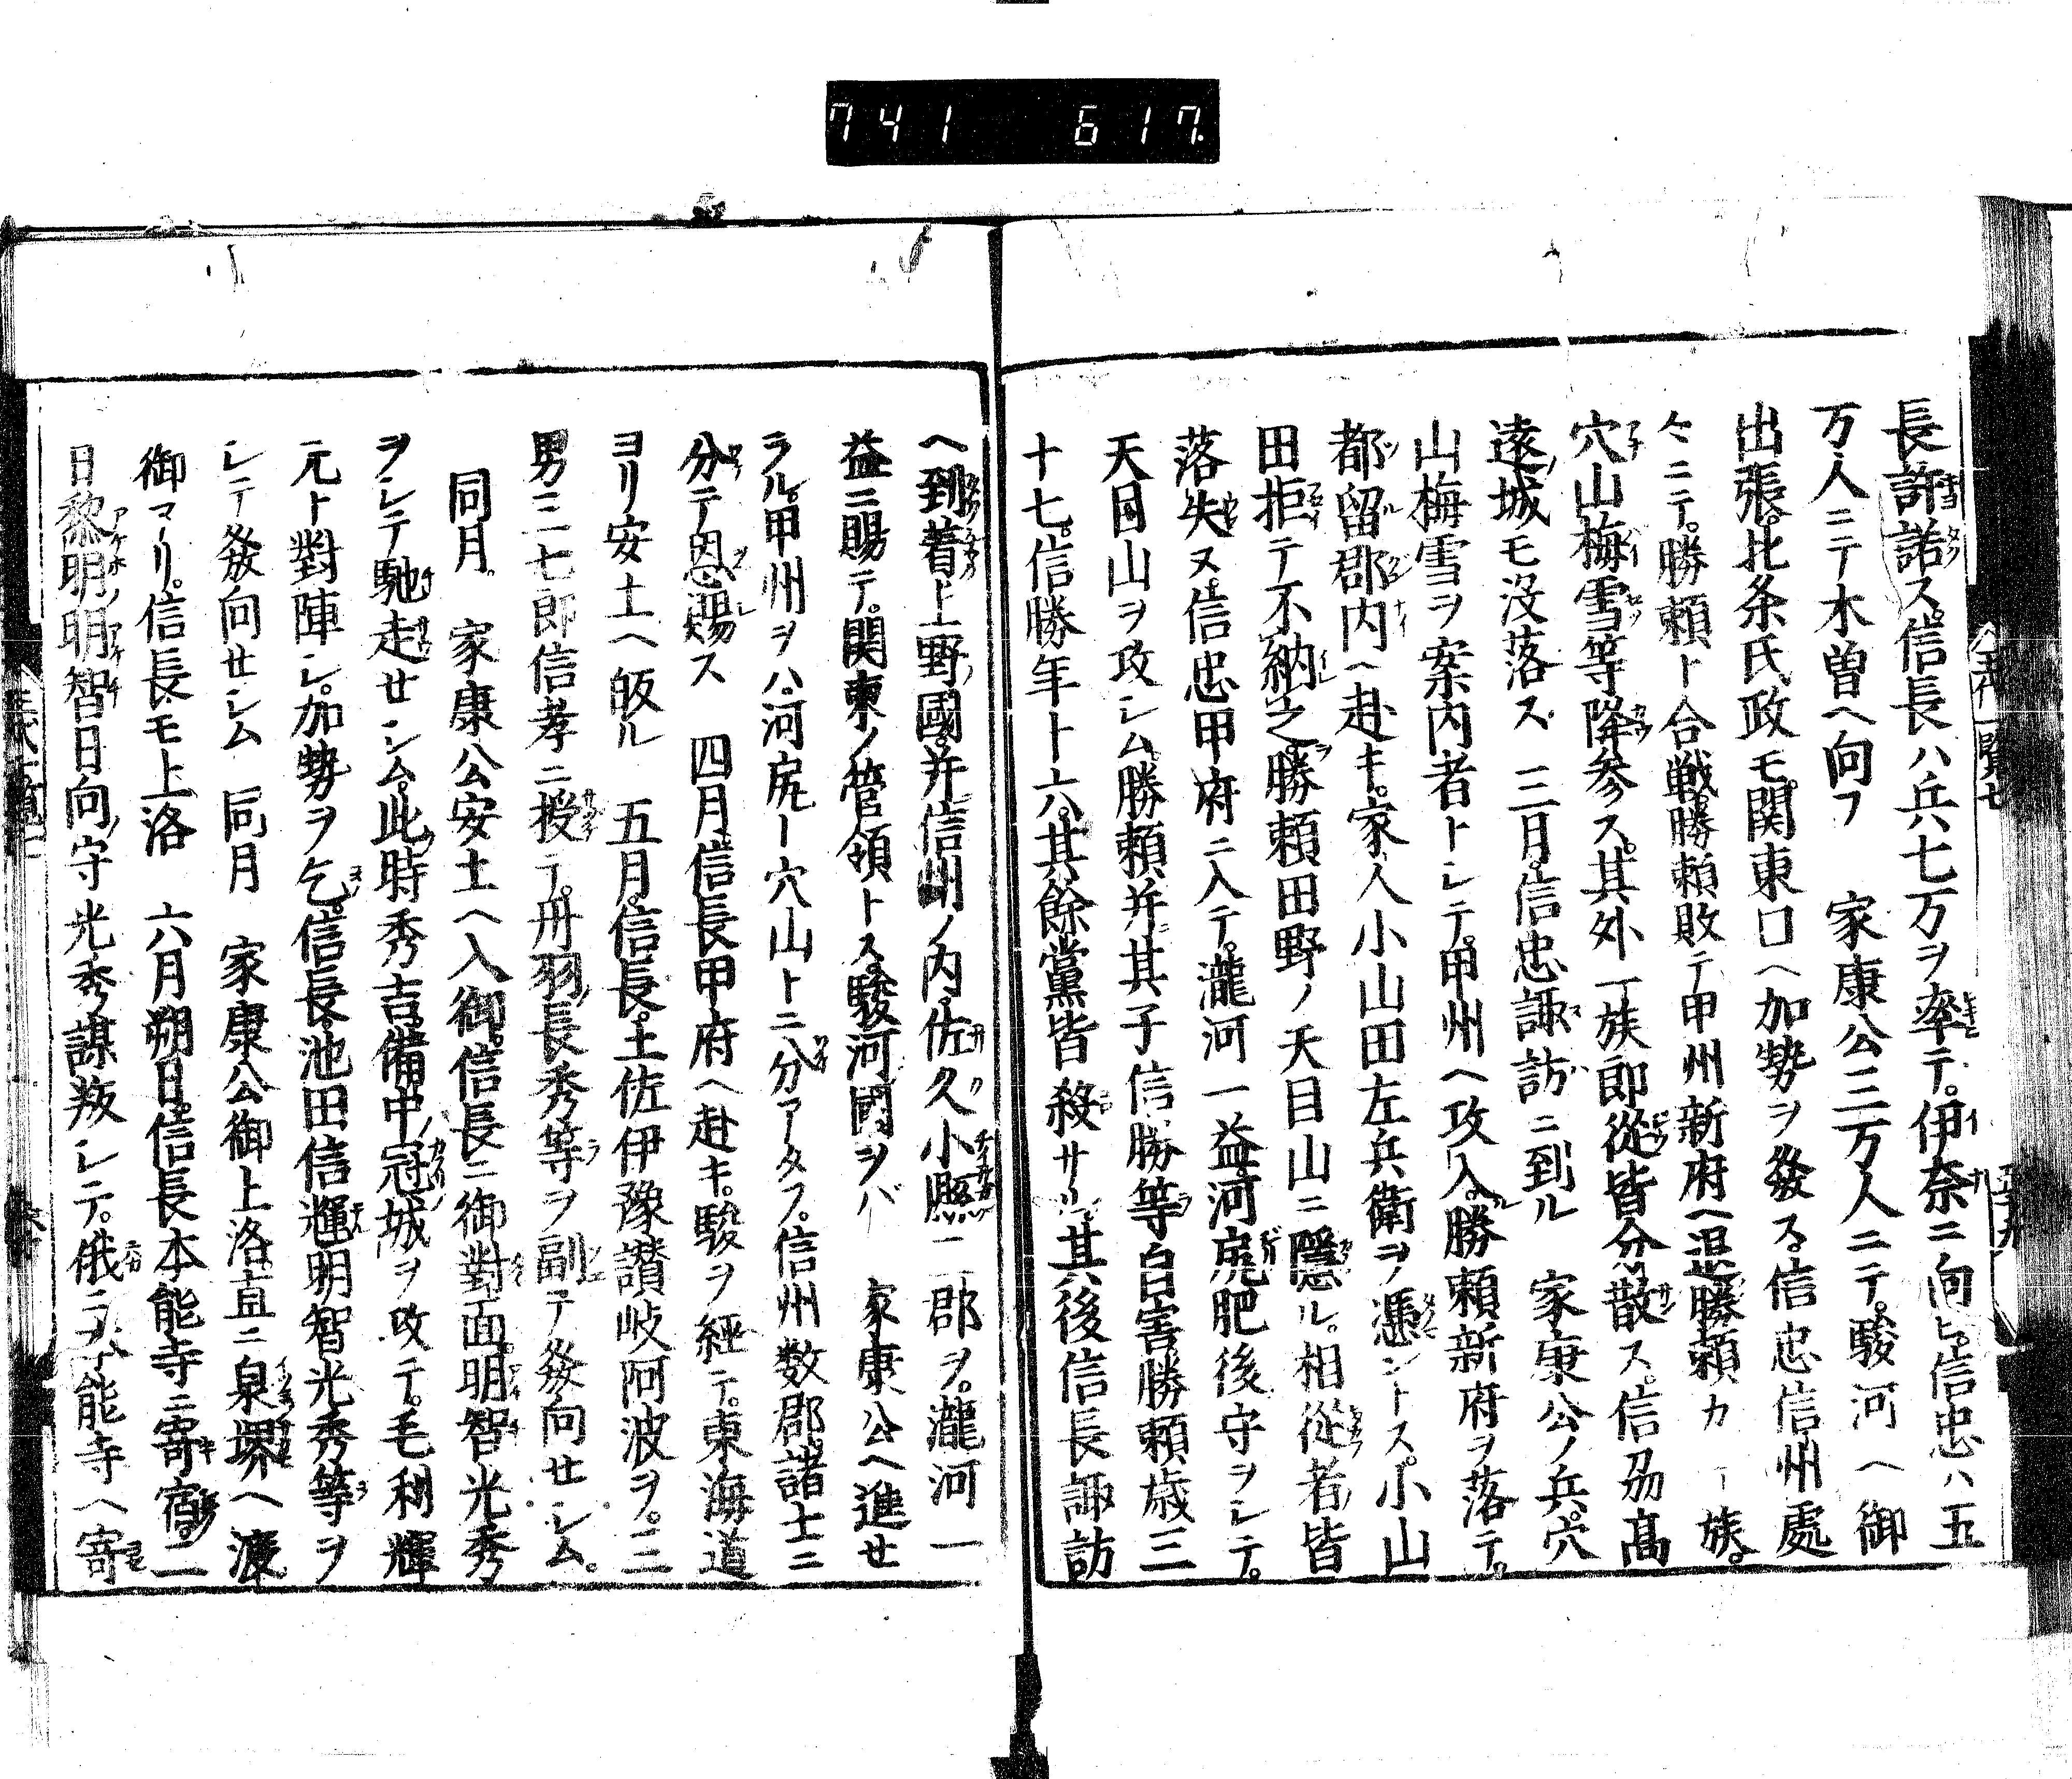 741 617
長許諾ス。信長ハ兵七万ヲ率テ。伊奈ニ向ヒ。信忠ハ五
万人ニテ木曽ヘ向フ　家康公三万人ニテ。駿河ヘ御
出張。北条氏政モ。関東口ヘ加勢ヲ發ス。信忠信州處
々ニテ。勝頼ト合戦。勝頼敗テ甲州新府ヘ退。勝頼カ一族。
穴山梅雪等降参ス。其外一族郎從皆分散ス。信刕髙
遠城モ没落ス　三月。信忠諏訪ニ到ル　家康公ノ兵。穴
山梅雪ヲ案内者トシテ。甲州ヘ攻入。勝頼新府ヲ落テ。
都留郡内ヘ赴キ。家人小山田左兵衛ヲ憑ントス。小山
田拒テ不納之。勝頼田野ノ天目山ニ隠ル。相從者皆
落失ヌ。信忠甲府ニ入テ。瀧河一益。河尻肥後守ヲシテ。
天目山ヲ攻シム。勝頼并其子信勝等自害。勝頼歳三
十七。信勝年十六。其餘黨皆殺サル。其後信長諏訪
ヘ到着。上野國并信州ノ内。佐久小縣二郡ヲ。瀧河一
益ニ賜テ。関東ノ管領トス。駿河國ヲバ　家康公ヘ進セ
ラル。甲州ヲハ。河尻ー穴山トニ分アタフ。信州数郡。諸士ニ
分テ恩賜ス　四月。信長甲府ヘ赴キ。駿ヲ經テ。東海道
ヨリ安土ヘ皈ル　五月。信長。土佐伊豫讃岐阿波ヲ。三
男三七郎信孝ニ授テ。丹羽長秀等ヲ副テ發向セシム。
同月。　家康公安土ヘ入御。信長ニ御對面。明智光秀
ヲシテ馳走セシム。此時秀吉備中冠城ヲ攻テ。毛利輝
元ト對陣シ。加勢ヲ乞。信長。池田信輝明智光秀等ヲ
シテ發向セシム　同月　家康公御上洛。直ニ泉堺ヘ渡
御マーリ。信長モ上洛　六月朔日。信長本能寺ニ寄宿。二
日黎明。明智日向守光秀謀叛シテ。俄ニ本能寺ヘ寄